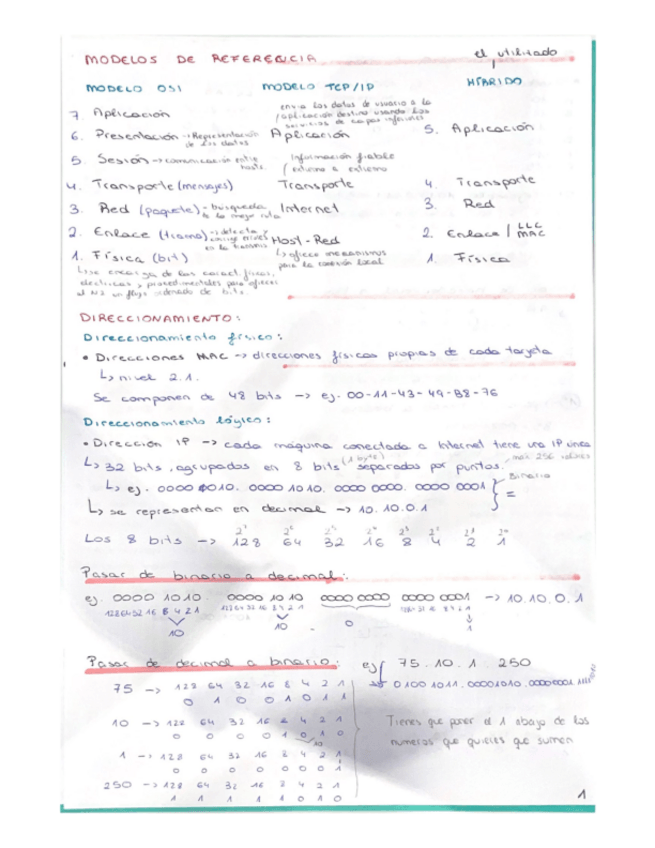 el utilizado
MODELOS DE REFERENCIA
MODELO OSI MODELO TCP/IP HÍBRIDO
envia los datos de usuario a la
aplicación destino usando los
servicios de capas inferiores
7. Aplicación
6. Presentación → Representación de los datos Aplicación 5. Aplicación
5. Sesión → comunicación entre hosts. Información fiable
extremo a extremo
4. Transporte (mensajes) Transporte 4. Transporte
3. Red (paquete) - búsqueda de la mejor ruta Internet 3. Red
2. Enlace (trama) → detecta y corrige errores en la transmis. Host-Red 2. Enlace / LLC MAC
1. Física (bit) ↳ ofrece mecanismos para la conexión local 1. Física
↳ se encarga de las caract. físicas,
eléctricas y procedimentales para ofrecer
al N2 un flujo ordenado de bits.
DIRECCIONAMIENTO:
Direccionamiento físico:
• Direcciones MAC → direcciones físicas propias de cada tarjeta
↳ nivel 2.1.
Se componen de 48 bits → ej. 00-11-43-49-B8-76
Direccionamiento lógico:
• Dirección IP → cada máquina conectada a Internet tiene una IP única
↳ 32 bits, agrupados en 8 bits (1 byte) separados por puntos. max 256 valores
↳ ej. 0000 1010. 0000 1010. 0000 0000. 0000 0001 } Binario =
↳ se representan en decimal → 10.10.0.1
2⁷ 2⁶ 2⁵ 2⁴ 2³ 2² 2¹ 2⁰
Los 8 bits → 128 64 32 16 8 4 2 1
Pasar de binario a decimal:
ej. 0000 1010. 0000 1010 0000 0000 0000 0001 → 10.10.0.1
128 64 32 16 8 4 2 1 128 64 32 16 8 4 2 1 128 64 32 16 8 4 2 1
10 10 . 0 1
Pasar de decimal a binario: ej 75.10.1.250
75 → 128 64 32 16 8 4 2 1 0100 1011. 00001010. 00000001
0 1 0 0 1 0 1 1
10 → 128 64 32 16 8 4 2 1 Tienes que poner el 1 abajo de los
0 0 0 0 1 0 1 0 numeros que quieres que sumen
10
1 → 128 64 32 16 8 4 2 1
0 0 0 0 0 0 0 1
250 → 128 64 32 16 8 4 2 1
1 1 1 1 1 0 1 0
1